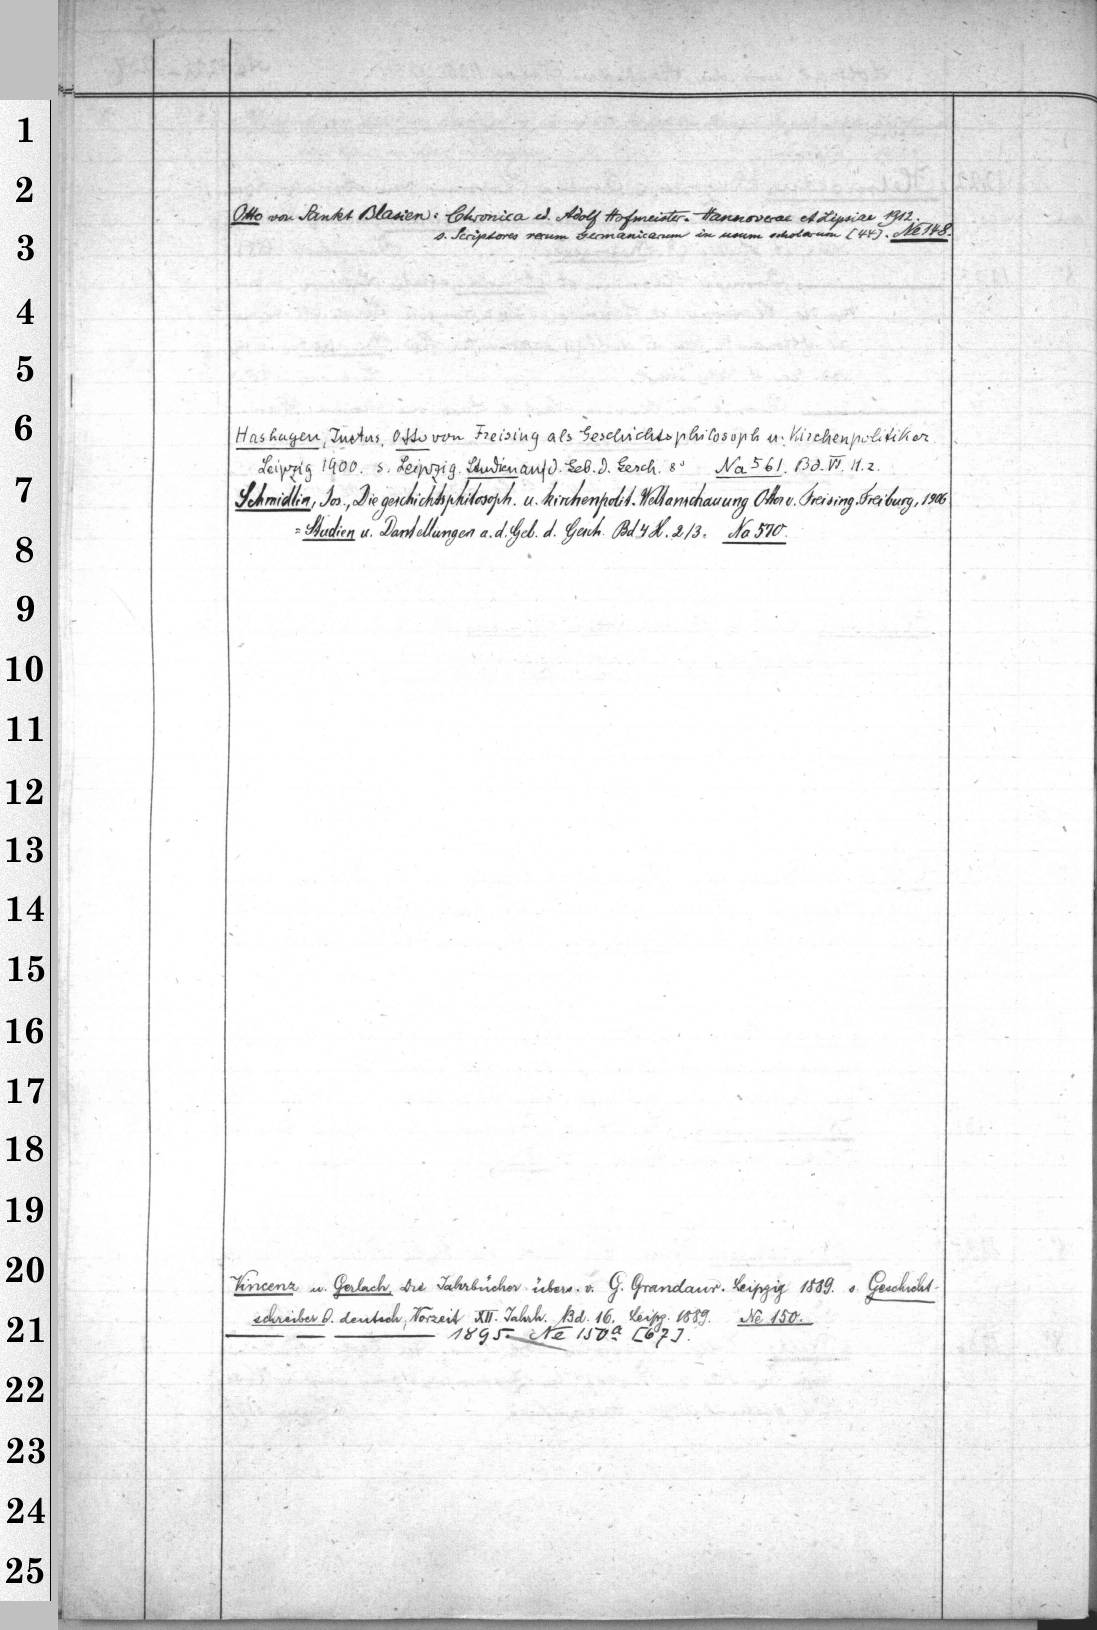 1
2
Otto von Sankt Blasien: Chronica ed. Adolf Hofmeister. Hannoverae et Lipsiae 1912.
s. Scriptores rerum Germanicarum in usum scholarum [44]. Ne 148.
3
4
5
6
Hashagen, Justus, Otto von Freising als Geschichtsphilosoph u. Kirchenpolitiker.
Leipzig 1900. s. Leipzig. Studien auf d. Geb. d. Gesch. 8° Na 561. Bd. VI. H. 2.
7
Schmidlin, Jos., Die geschichtsphilosoph. u. kirchenpolit. Weltanschauung Ottos v. Freising. Freiburg, 1906
= Studien u. Darstellungen a. d. Geb. d. Gesch. Bd 4 H. 2/3. Na 570.
8
9
10
11
12
13
14
15
16
17
18
19
20
Vincenz u. Gerlach, Die Jahrbücher übers. v. G. Grandaur. Leipzig 1889. s. Geschicht-
schreiber d. deutsch. Vorzeit XII. Jahrh. Bd. 16. Leipz. 1889. Ne 150.
21
1895. Ne 150a [67].
22
23
24
25